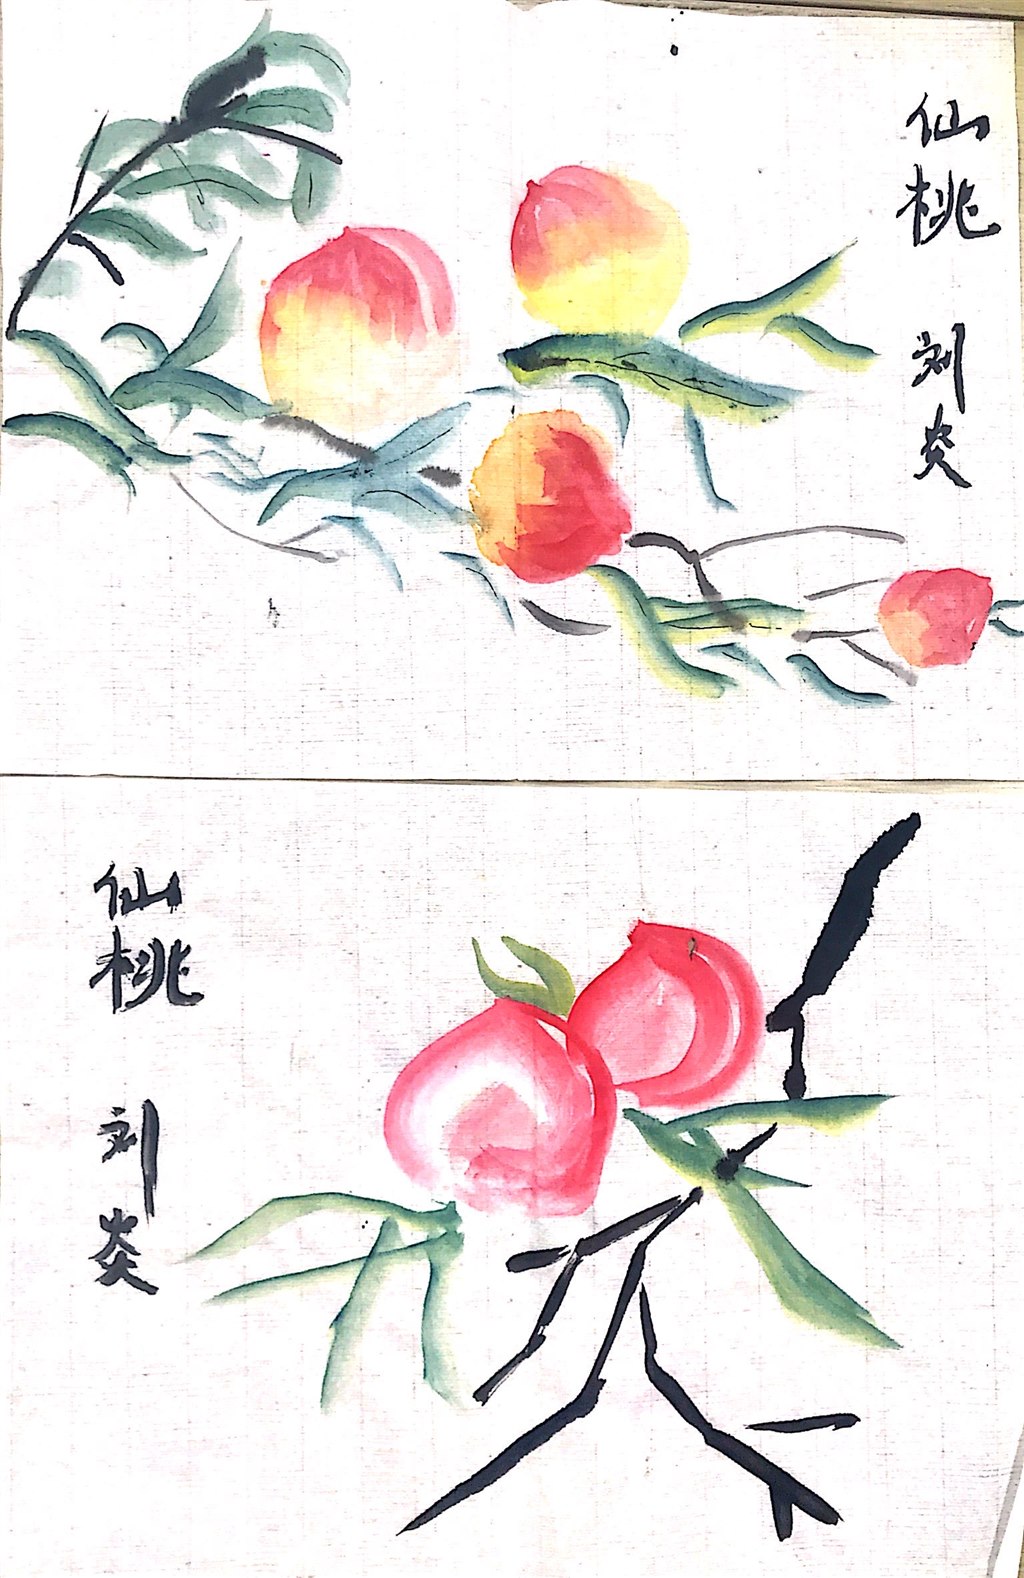 仙桃
刘炎
仙桃
刘炎